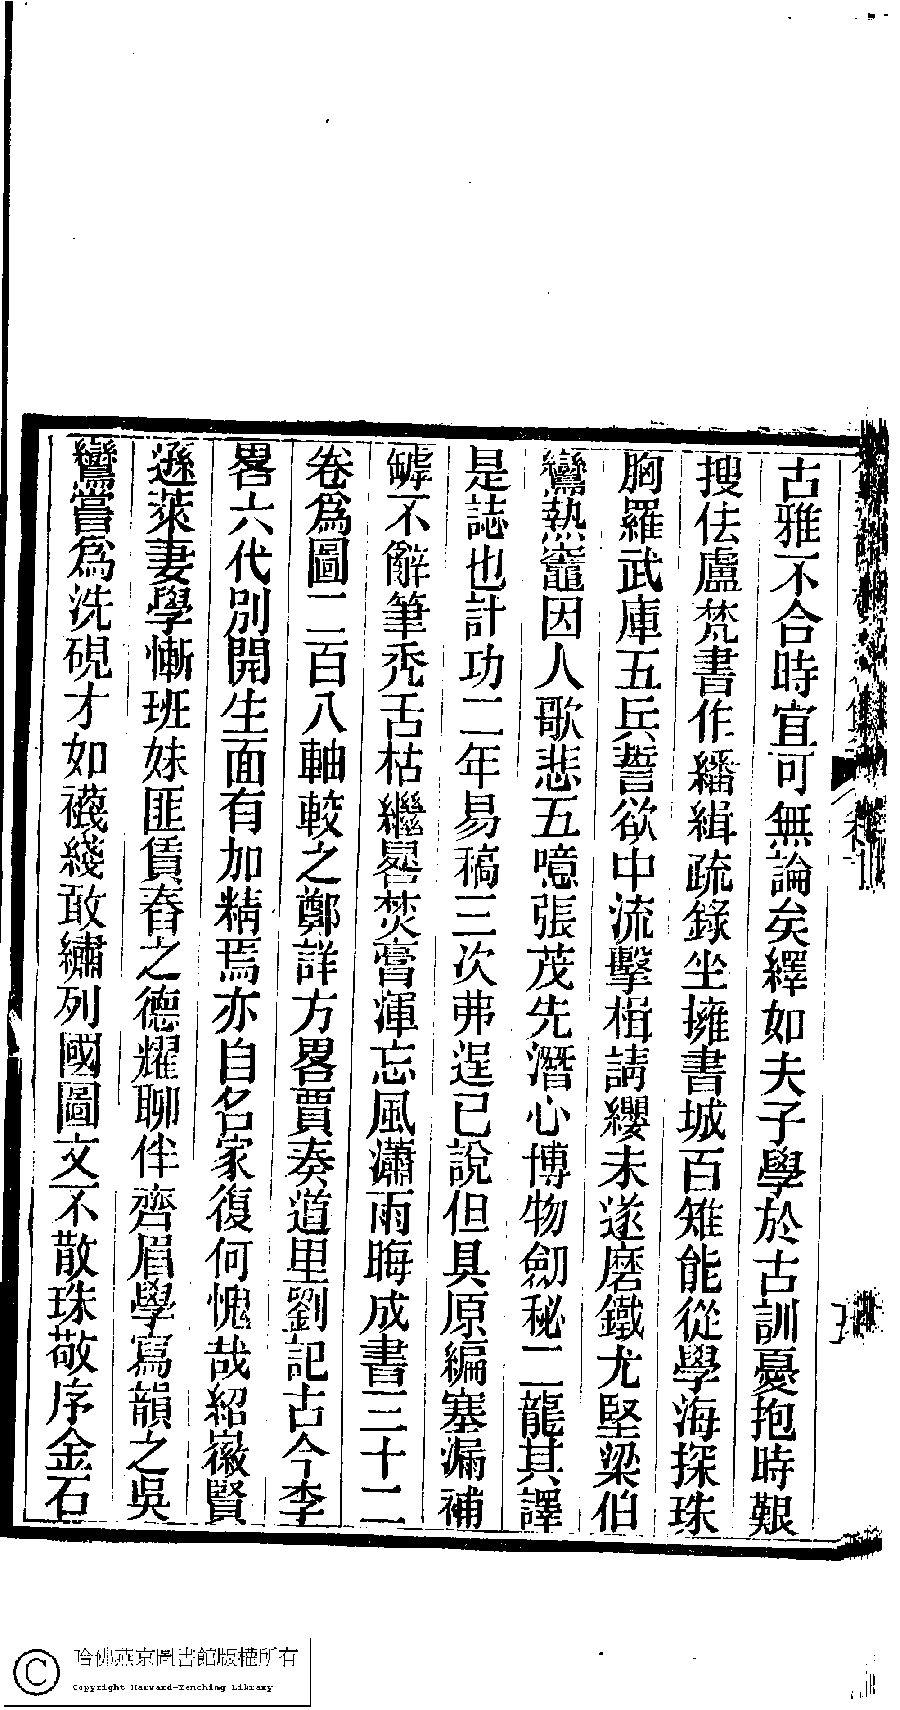 古雅不合時宜可無論矣繹如夫子學於古訓憂抱時艱
搜佉盧梵書作繙緝疏錄坐擁書城百雉能從學海探珠
胸羅武庫五兵誓欲中流擊楫請纓未遂磨鐵尤堅梁伯
鸞熱竈因人歌悲五噫張茂先潛心博物劒秘二龍其譯
是誌也計功二年易稿三次弗遑已說但具原編塞漏補
罅不辭筆禿舌枯繼晷焚膏渾忘風瀟雨晦成書三十二
卷爲圖二百八軸較之鄭詳方畧賈奏道里劉記古今李
畧六代別開生面有加精焉亦自名家復何愧哉紹徽賢
遜萊妻學慚班妹匪賃舂之德耀聊伴齊眉學寫韻之吳
鸞嘗爲洗硯才如襪綫敢繡列國圖文不散珠敬序金石
哈佛燕京圖書館版權所有
Copyright Harvard-Yenching Library